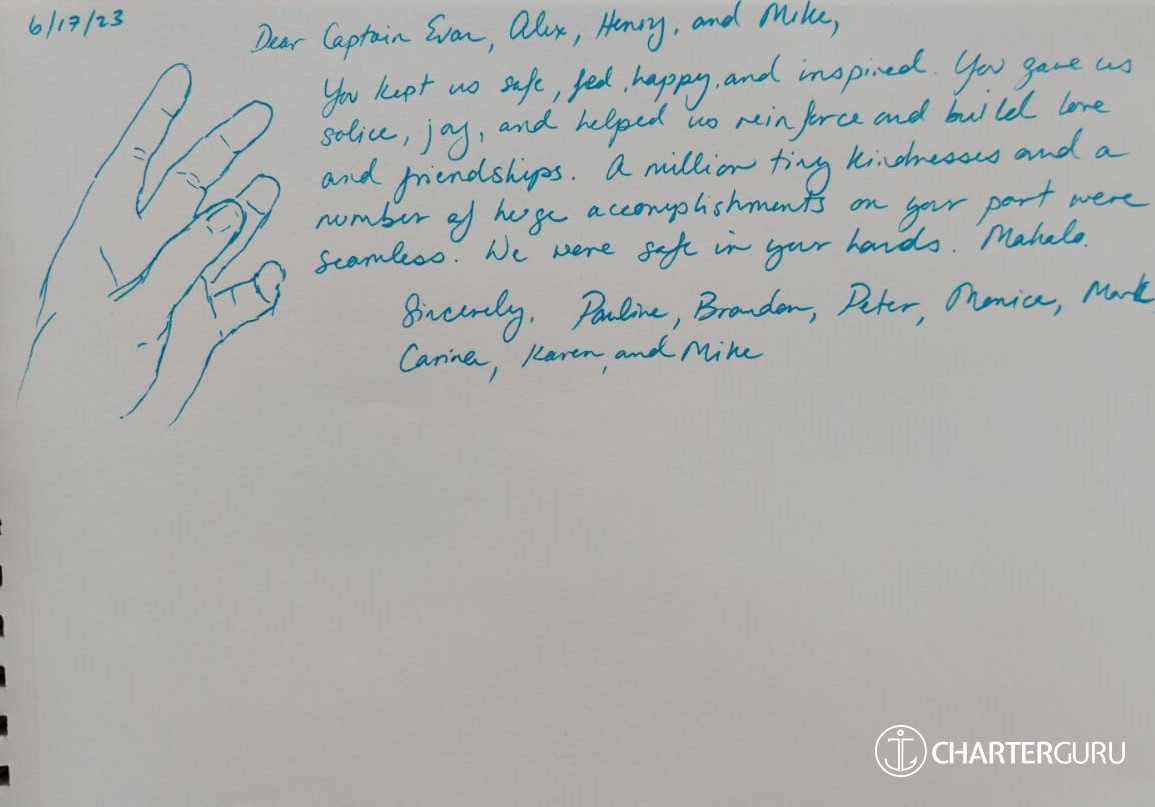 6/17/23
Dear Captain Evan, Alex, Henry, and Mike,
You kept us safe, fed, happy, and inspired. You gave us
solice, joy, and helped us reinforce and build love
and friendships. A million tiny kindnesses and a
number of huge accomplishments on your part were
seamless. We were safe in your hands. Mahalo.
Sincerely, Pauline, Brandon, Peter, Monica, Mark
Carina, Karen, and Mike
CHARTERGURU